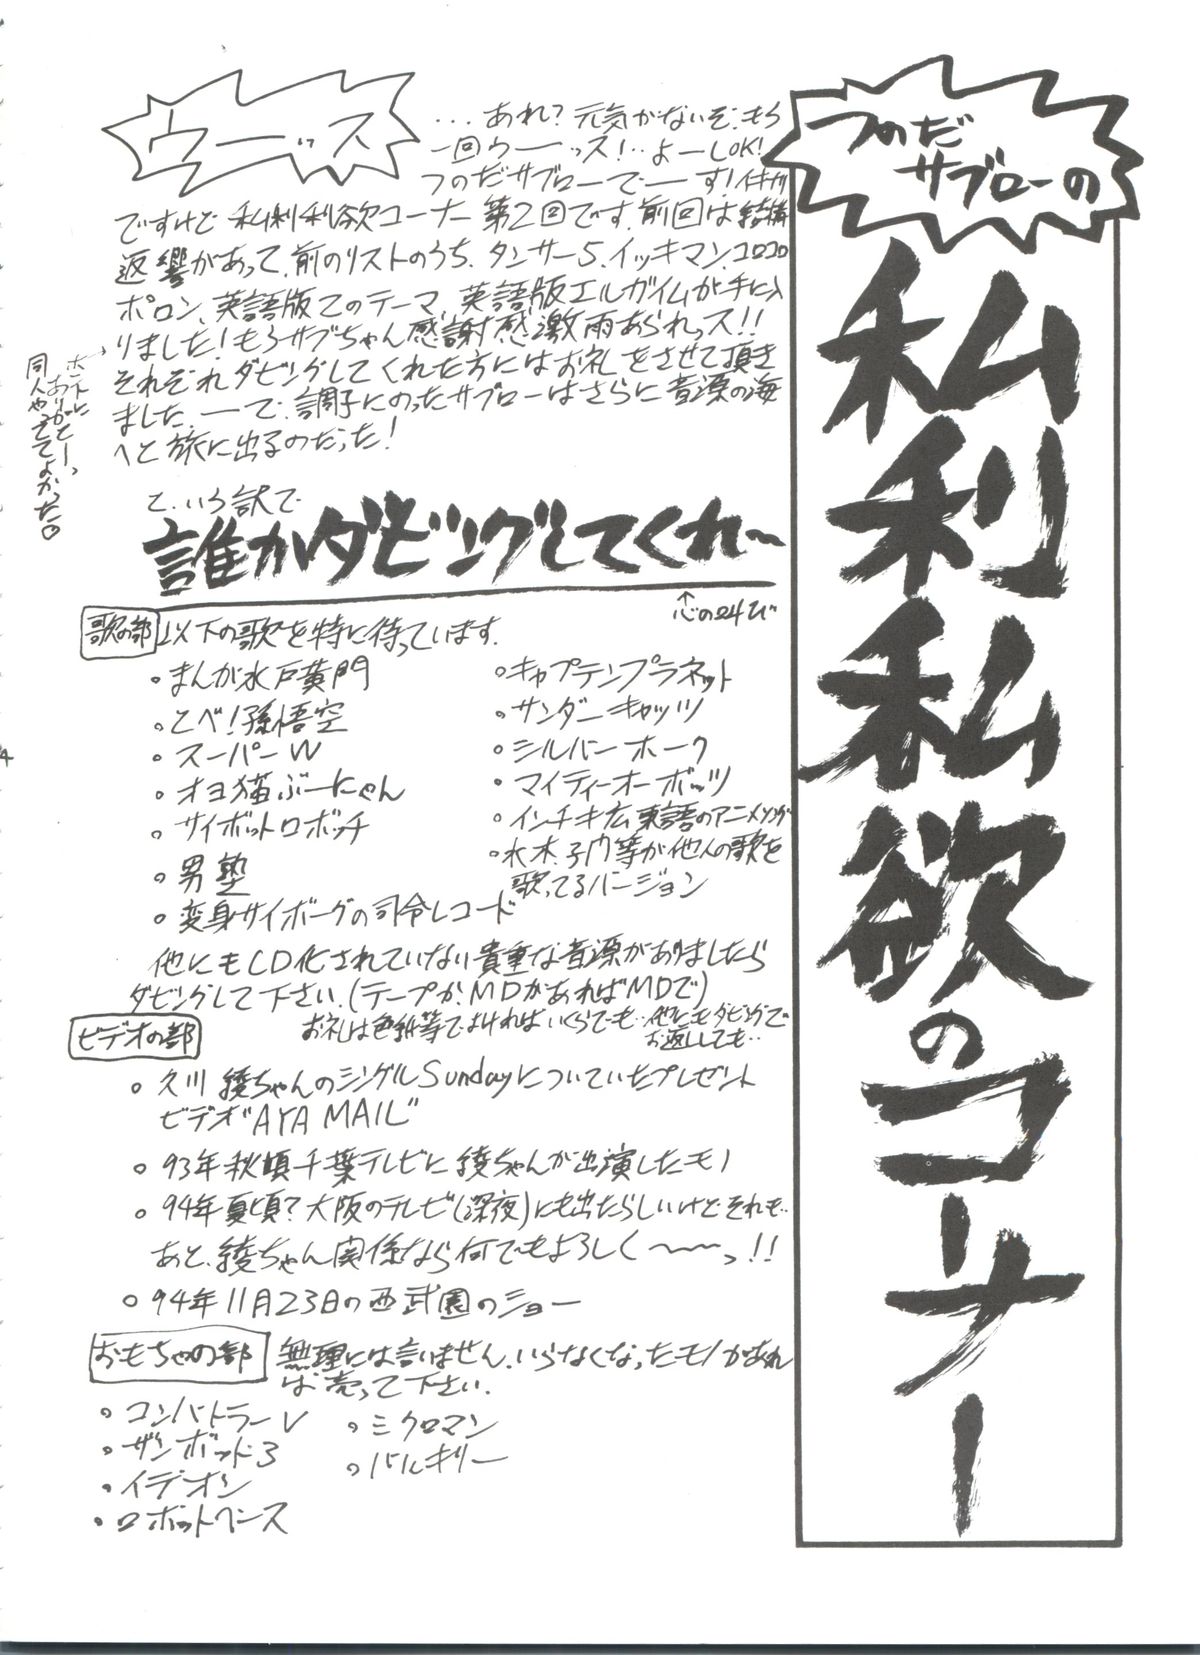 つのだ
サブローの
私利私欲のコーナー
ウーッス
・・・あれ？元気がないぞ、もう
一回ウーーッス！・・よーしOK！
つのだサブローでーーす！イキナリ
ですけど私利私欲コーナー第2回です。前回は結構
返響があって、前のリストのうち、タンサー5、イッキマン、コロコロ
ポロン、英語版Zのテーマ、英語版エルガイムが手に入
りました！もうサブちゃん感謝感激雨あられっス！！
それぞれダビングしてくれた方にはお礼をさせて頂き
ました。ーーで、調子にのったサブローはさらに音源の海
へと旅に出るのだった！
ホントに
ありがとーっ
同人やっててよかった。
と、いう訳で
誰かダビングしてくれ〜
↑心の叫び
歌の部 以下の歌を特に待っています。
・まんが水戸黄門
・とべ！孫悟空
・スーパーW
・オヨ猫ぶーにゃん
・サイボットロボッチ
・男塾
・変身サイボーグの司令レコード
・キャプテンプラネット
・サンダーキャッツ
・シルバーホーク
・マイティーオーボッツ
・インチキ広東語のアニメソング
・水木、子門等が他人の歌を
歌ってるバージョン
他にもCD化されていない貴重な音源がありましたら
ダビングして下さい。(テープか、MDがあればMDで)
お礼は色紙等でよければいくらでも・・他にもダビングで
お返ししても・・
ビデオの部
・久川綾ちゃんのシングルSundayについていたプレゼント
ビデオ"AYA MAIL"
・93年秋頃千葉テレビに綾ちゃんが出演したモノ
・94年夏頃？大阪のテレビ(深夜)にも出たらしいけどそれも・・
あと、綾ちゃん関係なら何でもよろしく〜〜っ！！
・94年11月23日の西武園のショー
おもちゃの部 無理には言いません。いらなくなったモノがあれ
ば売って下さい。
・コンバトラーV
・ザンボット3
・イデオン
・ロボットベース
・ミクロマン
・バルキリー
4